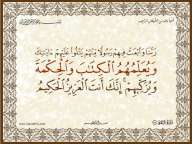 رَبَّنَا وَابْعَثْ فِيهِمْ رَسُولًا مِنْهُمْ يَتْلُو عَلَيْهِمْ آيَاتِكَ
وَيُعَلِّمُهُمُ الْكِتَابَ وَالْحِكْمَةَ
وَيُزَكِّيهِمْ إِنَّكَ أَنْتَ الْعَزِيزُ الْحَكِيمُ